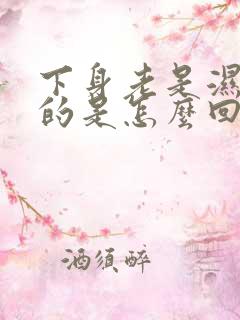 下身老是濕
的是怎麼回
酒須醉